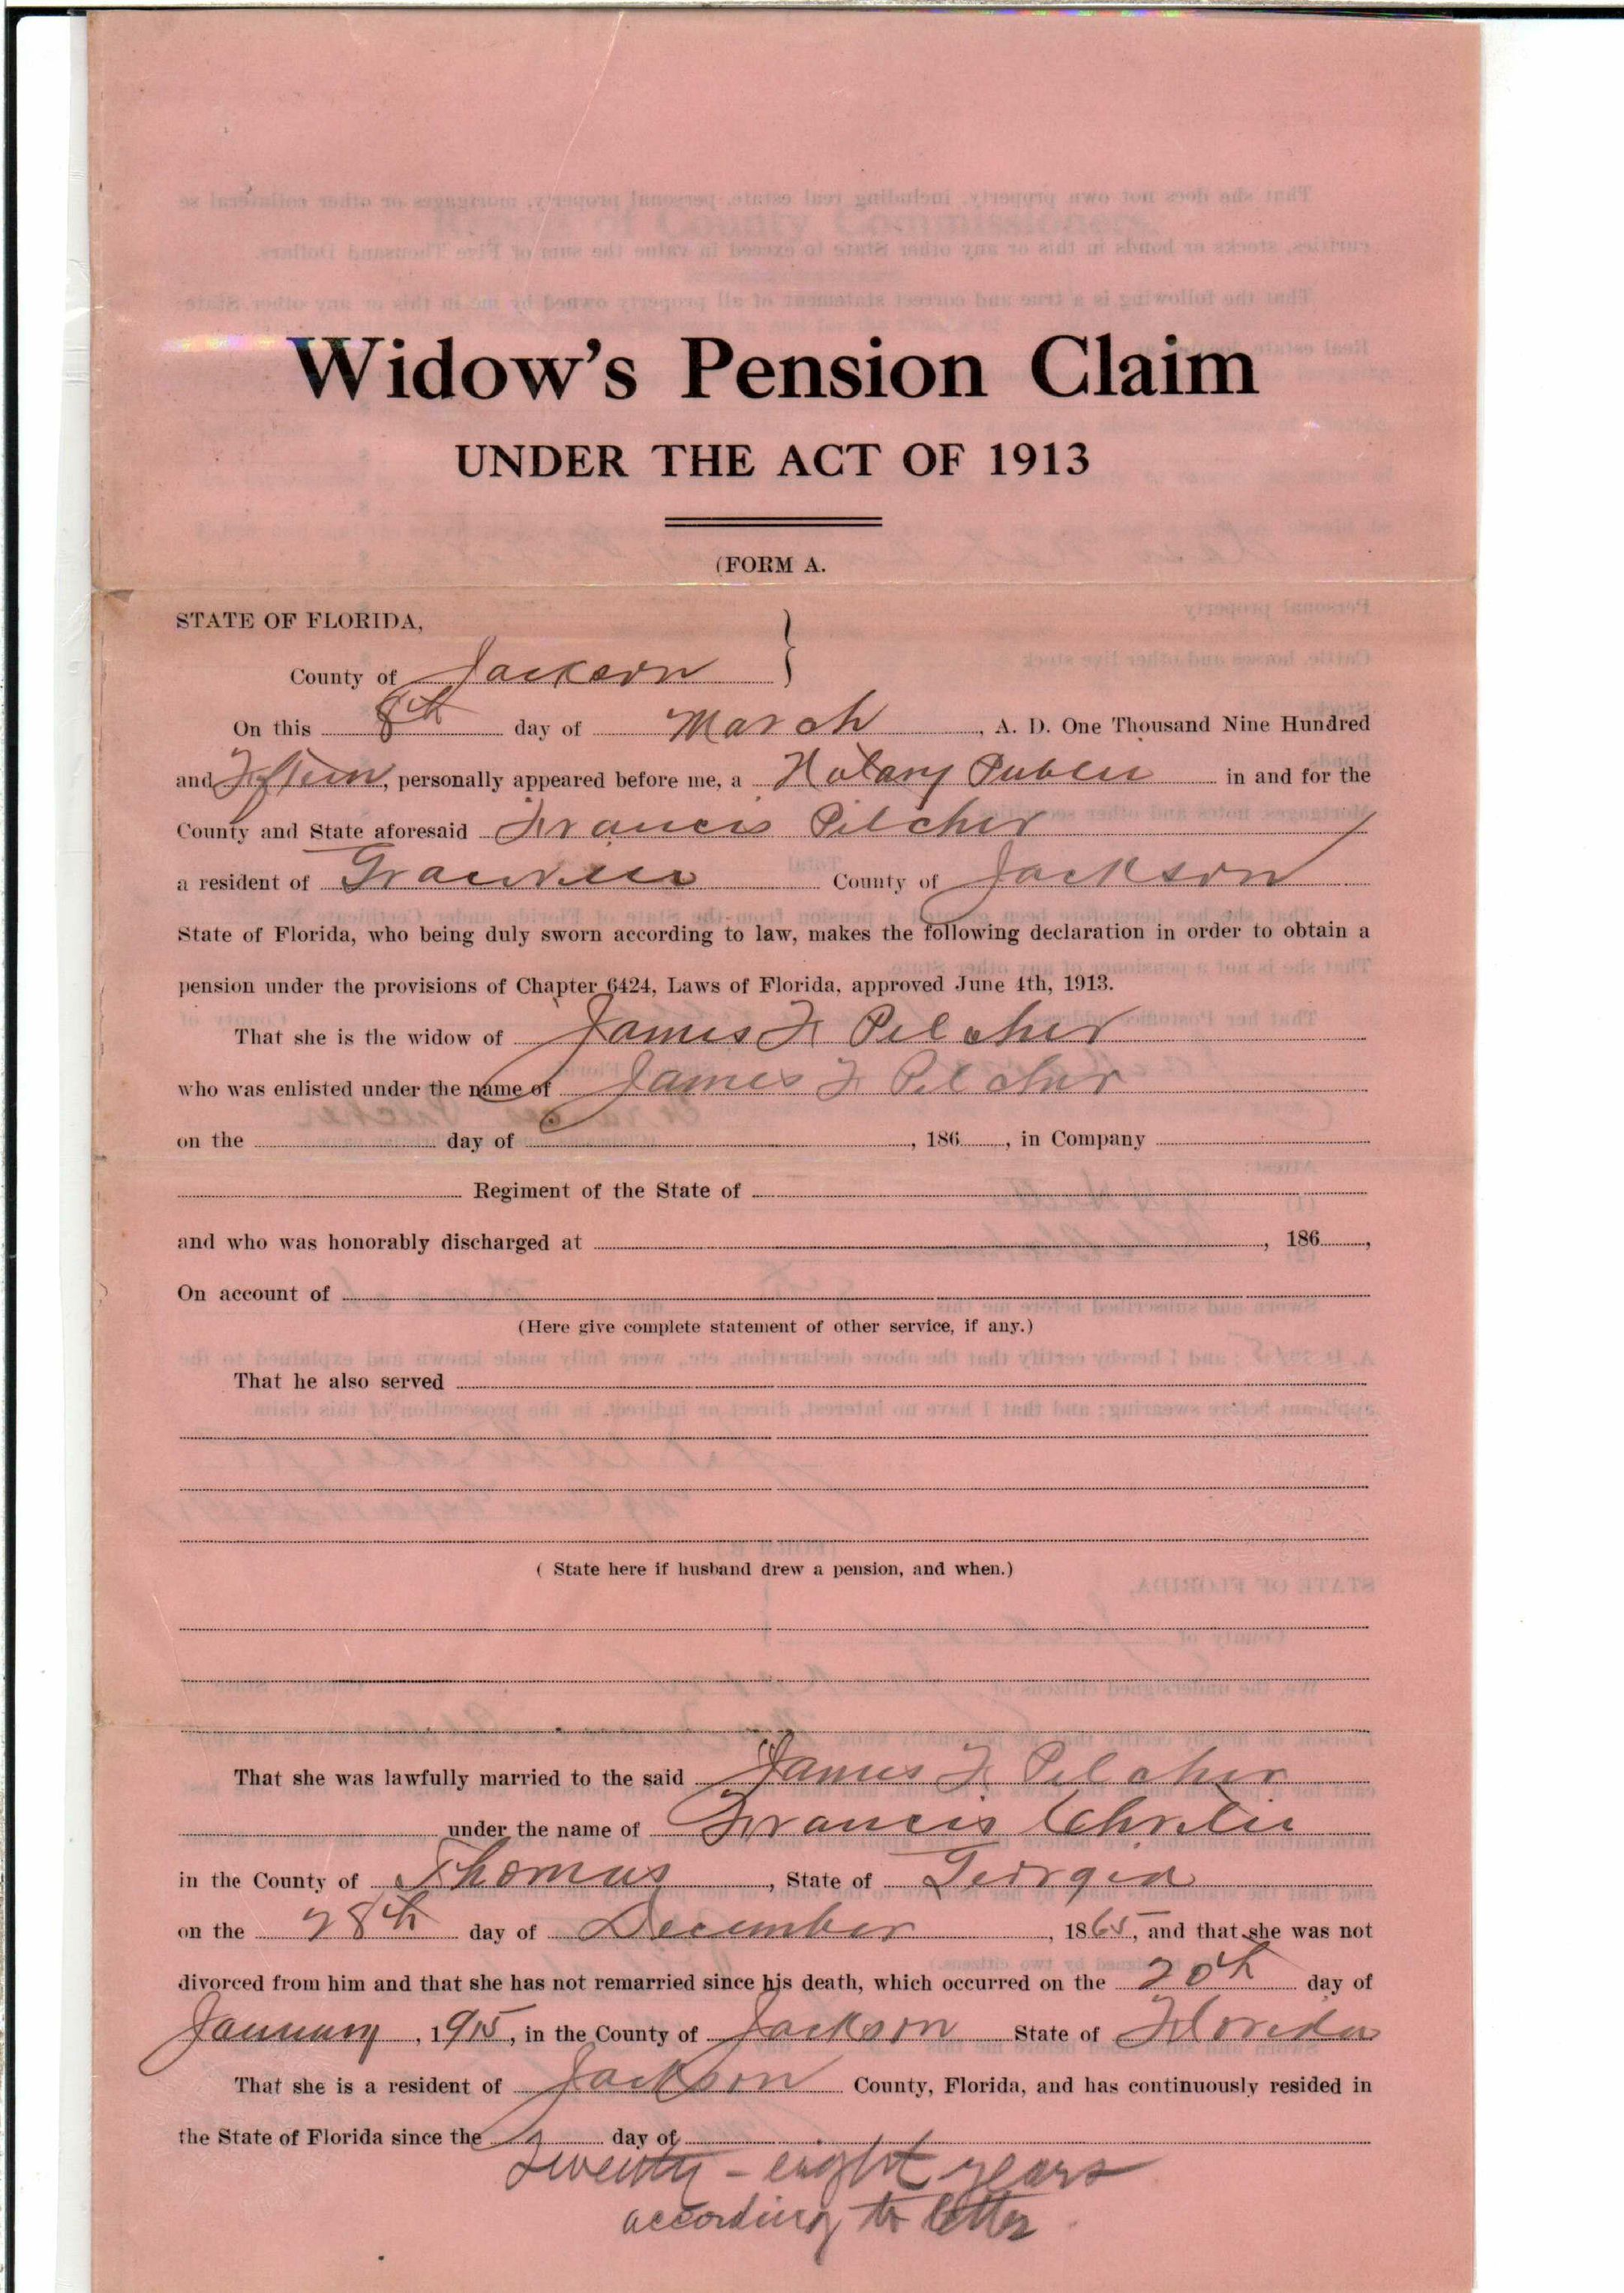 Widow's Pension Claim
UNDER THE ACT OF 1913
(FORM A.
STATE OF FLORIDA,
County of Jackson }
On this 8th day of March, A. D. One Thousand Nine Hundred
and Fifteen, personally appeared before me, a Notary Public in and for the
County and State aforesaid Francis Pilcher
a resident of County of Jackson
State of Florida, who being duly sworn according to law, makes the following declaration in order to obtain a
pension under the provisions of Chapter 6424, Laws of Florida, approved June 4th, 1913.
That she is the widow of James F Pilcher
who was enlisted under the name of James F Pilcher
on the day of , 186 , in Company
Regiment of the State of
and who was honorably discharged at , 186 ,
On account of
(Here give complete statement of other service, if any.)
That he also served
( State here if husband drew a pension, and when.)
That she was lawfully married to the said James F Pilcher
under the name of Francis
in the County of Thomas, State of Georgia
on the 28th day of December, 1865, and that she was not
divorced from him and that she has not remarried since his death, which occurred on the 20th day of
January, 1915, in the County of Jackson State of Florida
That she is a resident of Jackson County, Florida, and has continuously resided in
the State of Florida since the day of
Twenty-eight years
according to letter